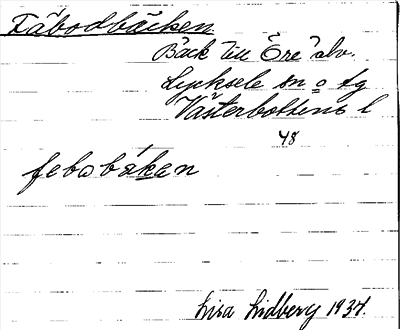 Fäbodbäcken
Bäck till Öre älv.
Lycksele sn o tg
Västerbottens l
48
febobákan
Lisa Lidberg 1934.